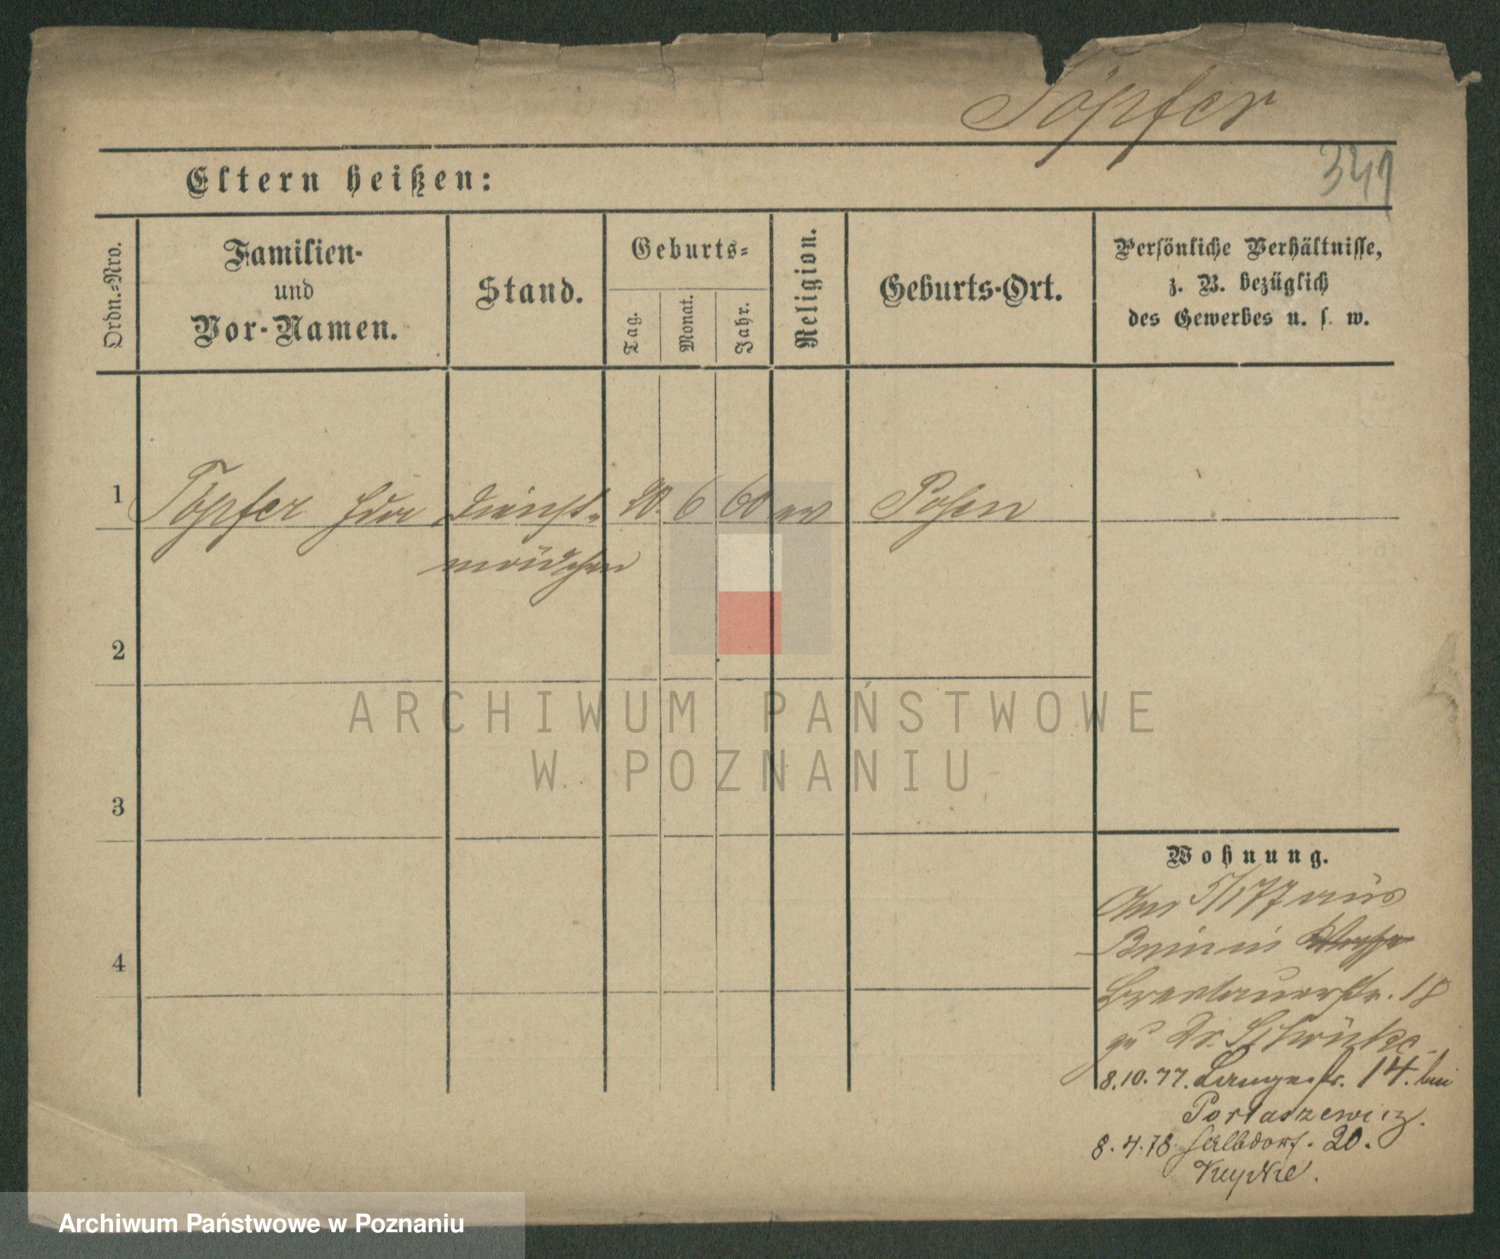 Töpfer
341
Eltern heißen:
Ordn.-Nro.
Familien-
und
Vor-Namen.
Stand.
Geburts-
Tag.
Monat.
Jahr.
Religion.
Geburts-Ort.
Persönliche Verhältnisse,
z. B. bezüglich
des Gewerbes u. s. w.
1 Töpfer Dienst- 20. 6 60 ev Posen
mädchen
2
3
4
Wohnung.
Am 5/1 77 aus
Breslauerstr. 18
zu Dr.
8.10.77. Langestr. 14. bei
Portaszewicz.
8.4.78. Halbdorf. 20.
ARCHIWUM PAŃSTWOWE
W POZNANIU
Archiwum Państwowe w Poznaniu